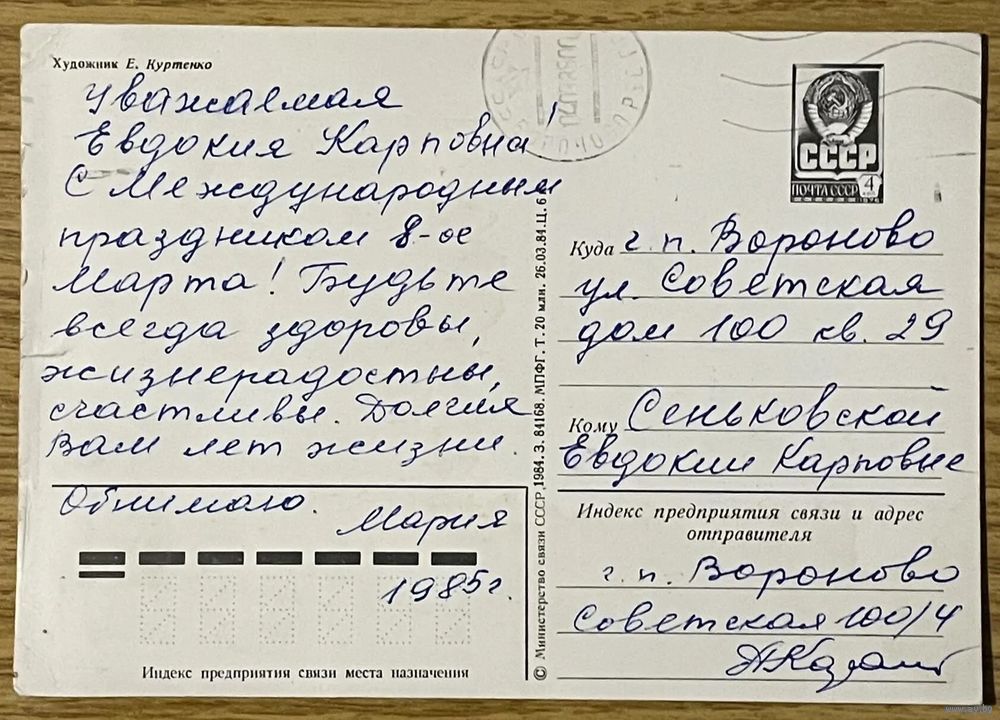 Художник Е. Куртенко
Уважаемая
Евдокия Карповна!
С Международным
праздником 8-ое
Марта! Будьте
всегда здоровы,
жизнерадостны,
счастливы. Долгия
Вам лет жизни.
Обнимаю.
Мария
1985г.
Индекс предприятия связи места назначения
© Министерство связи СССР, 1984. З. 84168. МПФГ. Т. 20 млн. 26.03.84. Ц. 6
СССР
ПОЧТА СССР 4
1976
Куда г. п. Вороново
ул. Советская
дом 100 кв. 29
Кому Сеньковской
Евдокии Карповне
Индекс предприятия связи и адрес
отправителя
г. п. Вороново
Советская 100/4